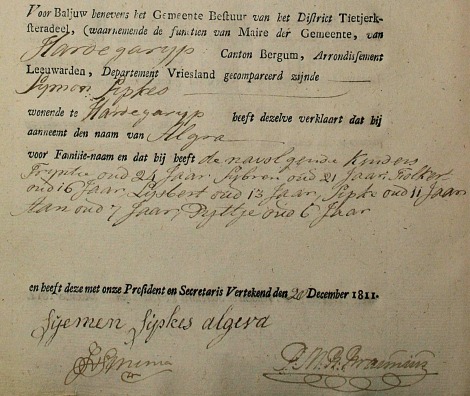 Voor Baljuw benevens het Gemeente Bestuur van het District Tietjerk-
steradeel, (waarnemende de functien van Maire der Gemeente, van
Hardegaryp Canton Bergum, Arrondissement
Leeuwarden, Departement Vriesland gecompareerd zijnde
Symon Sipkes
wonende te Hardegaryp heeft dezelve verklaart dat hij
aanneemt den naam van Algra
voor Familie-naam en dat hij heeft de navolgende Kinders
oud 24 Jaar, Sybren oud 21 Jaar, Folkert
oud 16 Jaar, Lijsbert oud 13 Jaar, Sipke oud 11 Jaar
oud 7 Jaar, oud 6 Jaar
en heeft deze met onze President en Secretaris Vertekend den 20 December 1811.
Sijemen Sipkes algera